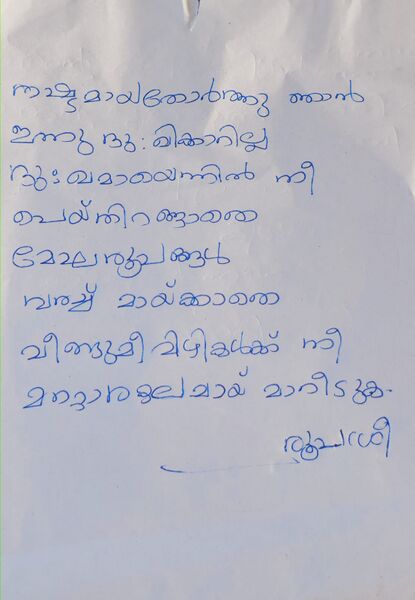 നഷ്ടമായതോർത്തു ഞാൻ
ഇന്നു ദു:ഖിക്കാറില്ല
ദു:ഖമായെന്നിൽ നീ
പെയ്തിറങ്ങാതെ
മേഘരൂപങ്ങൾ
വരച്ച് മായ്ക്കാതെ
വീങ്ങുമീ മിഴികൾക്ക് നീ
മാറീടുക.
രൂപശ്രീ